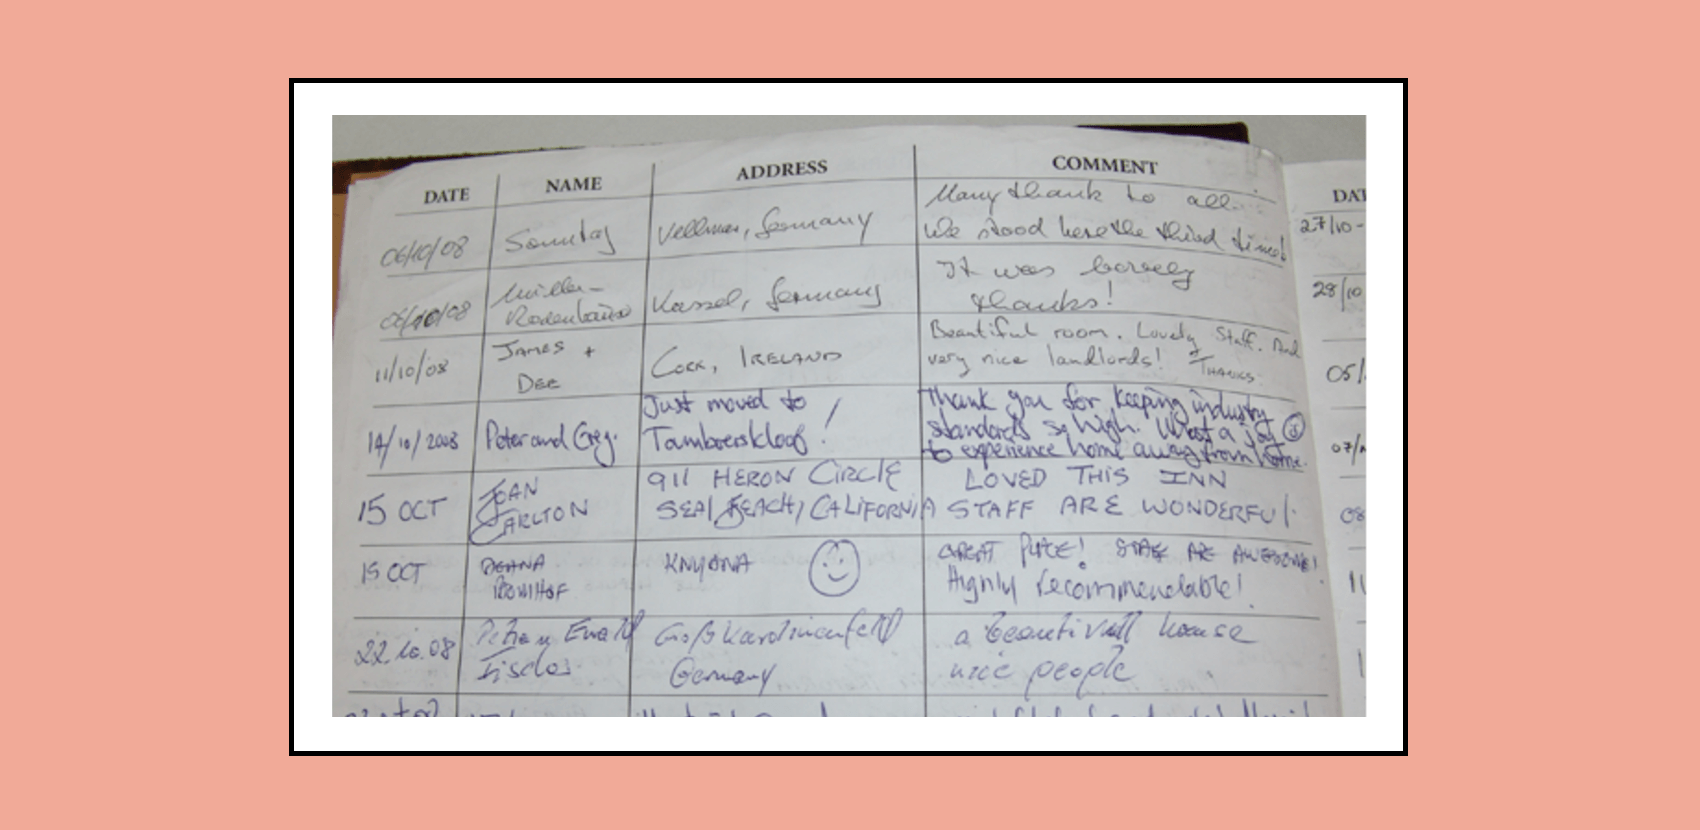 DATE NAME ADDRESS COMMENT
Many thank to all.
06/10/08 Sonntag Vellmar, Germany We stood here the third time!
It was lovely
06/10/08 Müller- Kassel, Germany thanks!
James + Beautiful room. Lovely Staff. And
11/10/08 Dee Cork, IRELAND very nice landlords! THANKS.
Just moved to Thank you for keeping industry
14/10/2008 Peter and Greg. Tamboerskloof! standards so high. What a joy
to experience home away from home.
911 HERON CIRCLE LOVED THIS INN
15 OCT JOAN CARLTON SEAL BEACH, CALIFORNIA STAFF ARE WONDERFUL
15 OCT DEANA KNYSNA GREAT PLACE! STAFF ARE AWESOME!
Highly recommendable!
22.10.08 Ewald a beautivull house
Germany nice people
DAT
27/10-
28/10
05/
07/
08